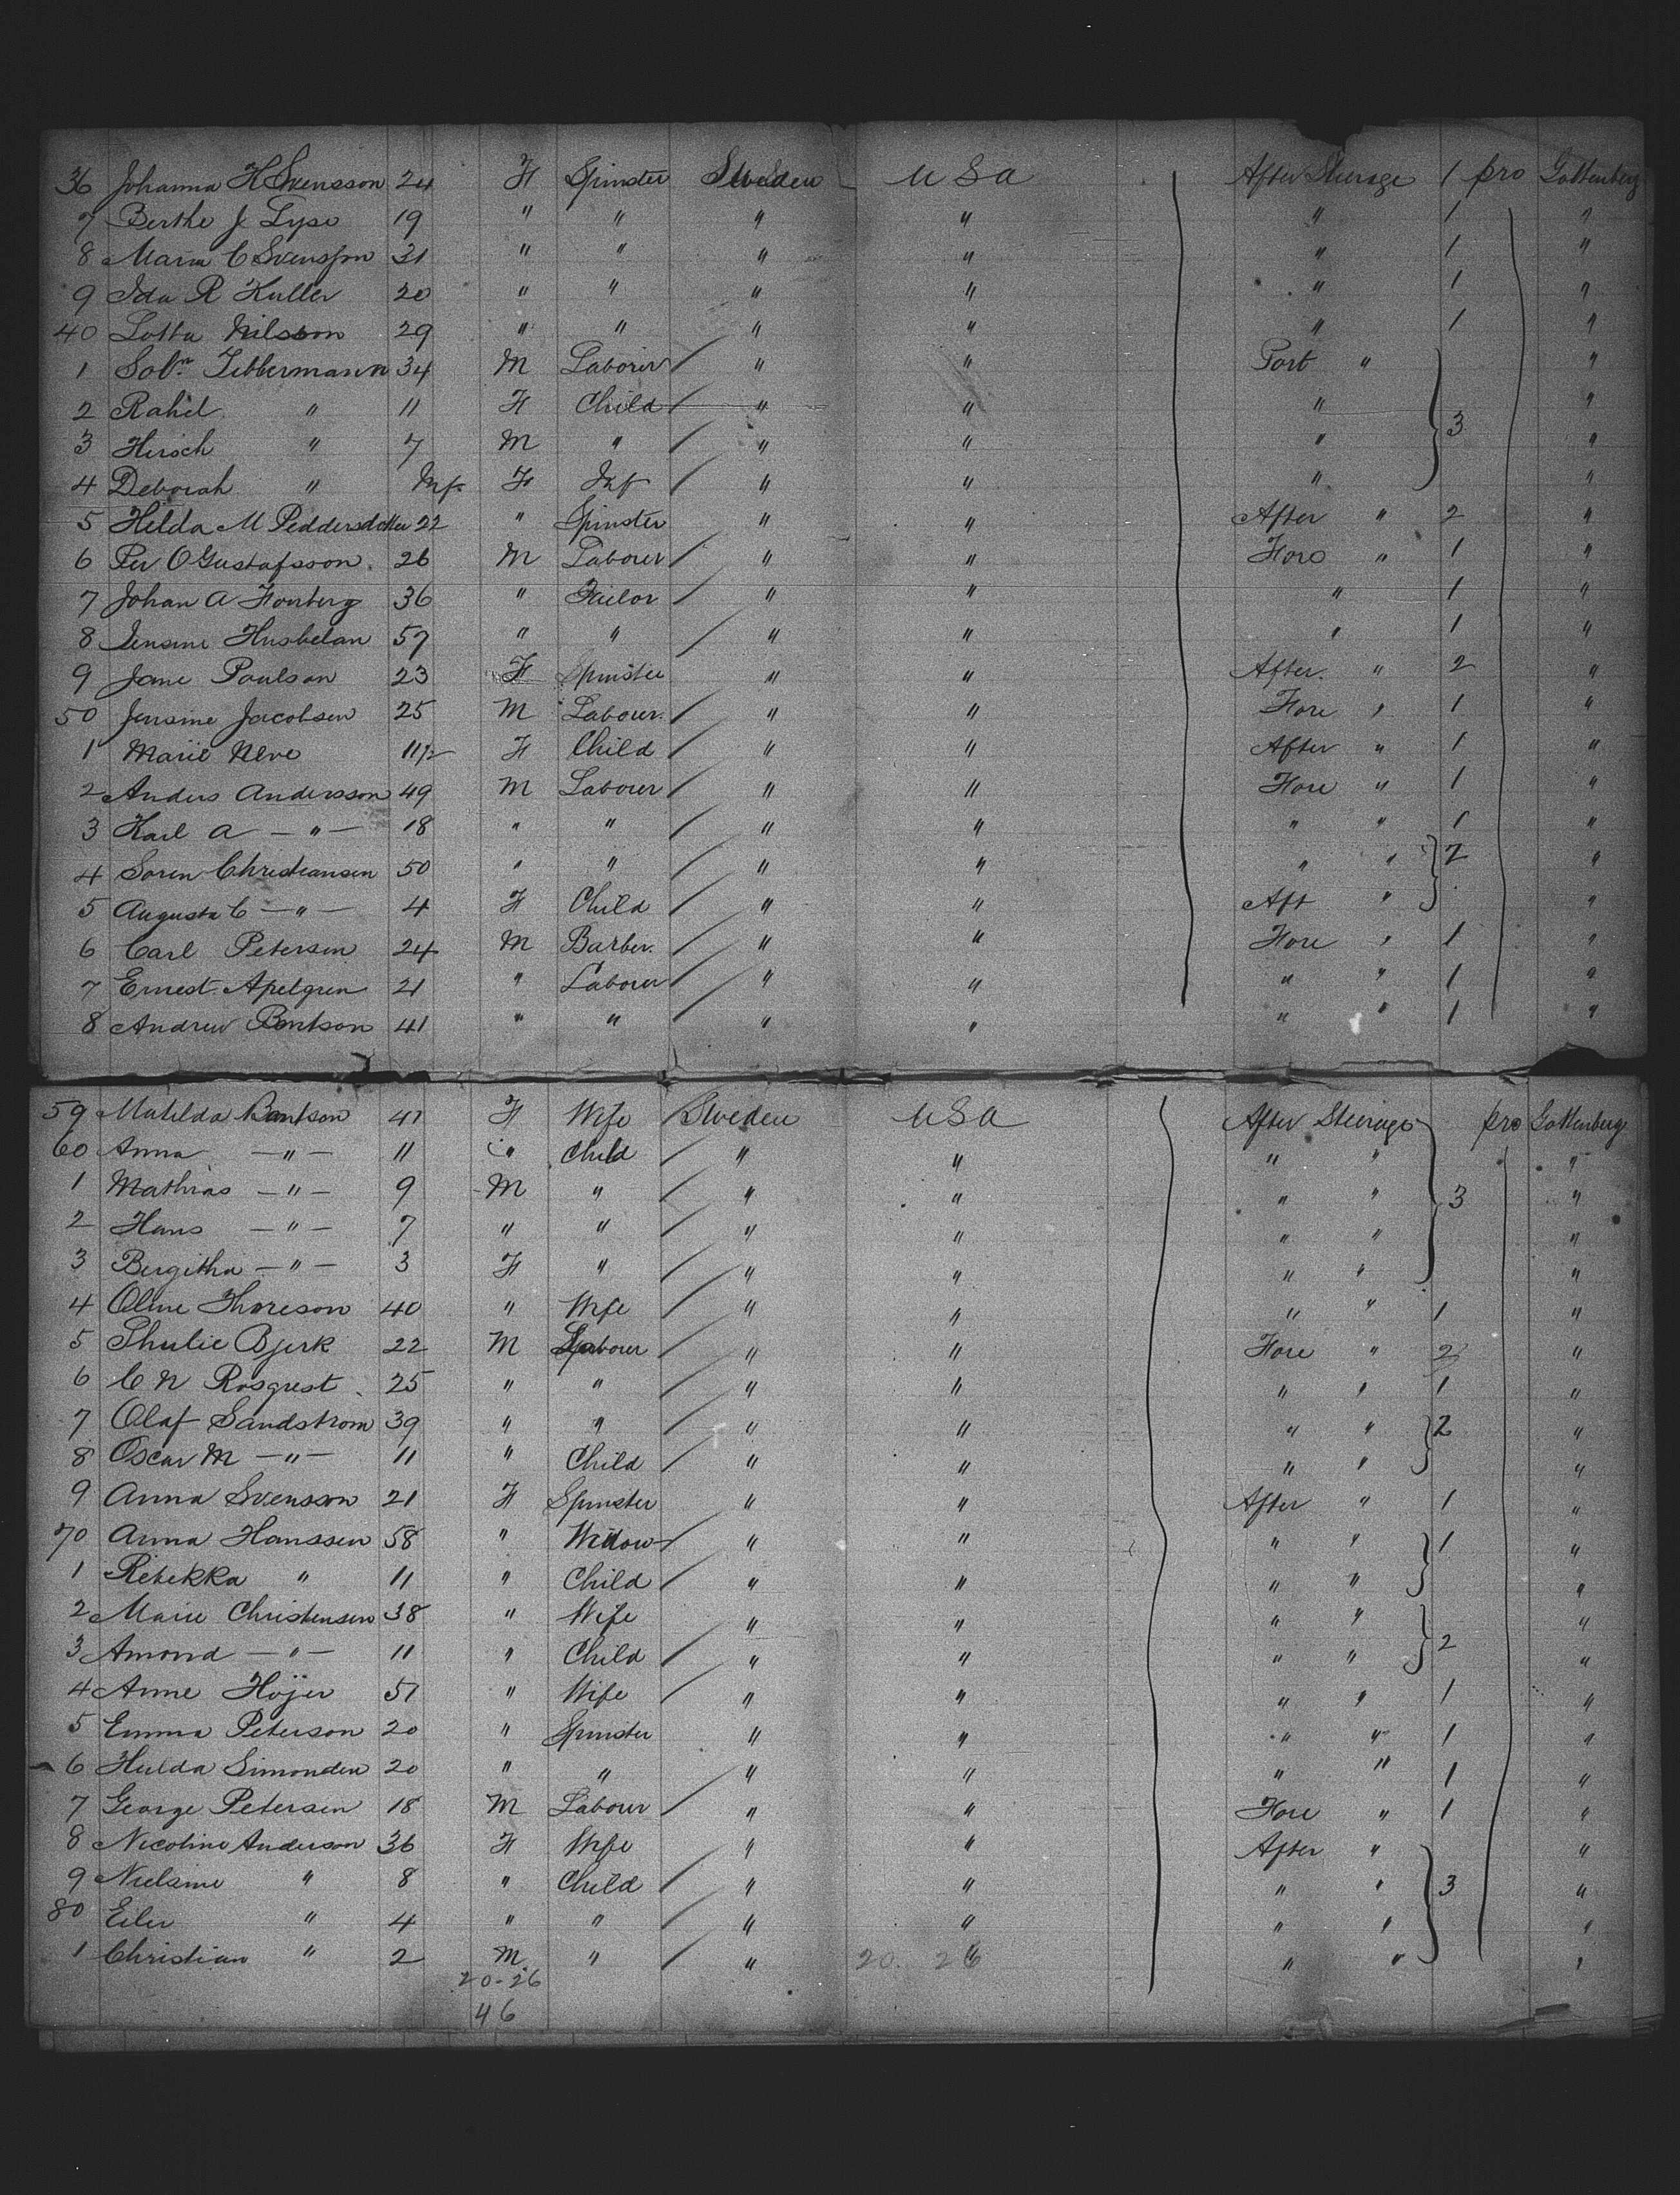 36 Johanna H Svensson 24 F Spinster Sweden USA After Steerage 1 pro Gottenberg
7 Berthe J Lyse 19 " " " " " 1 "
8 Maria C Svensson 31 " " " " " 1 "
9 Ida R Kuller 20 " " " " " 1 "
40 Lotta Nilsson 29 " " " " " 1 "
1 Solⁿ Zibbermann 34 M Laborer " " Port " "
2 Rahel " 11 F Child " " " "
3 Hirsch " 7 M " " " " 3 "
4 Deborah " Inf F Inf " " " "
5 Hilda M Peddersdotter 22 " Spinster " " After " 2 "
6 Per O Gustafsson 26 M Labourer " " Fore " 1 "
7 Johan A 36 " Tailor " " " 1 "
8 Jensine Husbelan 57 " " " " " 1 "
9 Jane Paulson 23 F Spinster " " After " 2 "
50 Jensine Jacobsen 25 M Labour. " " Fore " 1 "
1 Marie Neve 11 F Child " " After " 1 "
2 Anders Andersson 49 M Labourer " " Fore " 1 "
3 Karl A — " — 18 " " " " " " 1 "
4 Soren Christiansen 50 " " " " " " 2 "
5 Augusta C — " — 4 F Child " " Aft " "
6 Carl Petersen 24 M Barber. " " Fore " 1 "
7 Ernest Apelgren 21 " Labourer " " " " 1 "
8 Andrew Bentson 41 " " " " " " 1 "
59 Matilda Bentson 41 F Wife Sweden USA After Steerage pro Gottenberg
60 Anna — " — 11 " Child " " " " "
1 Mathias — " — 9 M " " " " " 3 "
2 Hans — " — 7 " " " " " " "
3 Bergitha — " — 3 F " " " " " "
4 Oline Thoreson 40 " Wife " " " " 1 "
5 Thulie Bjerk 22 M Labourer " " Fore " 2 "
6 C N Rosgrest 25 " " " " " " 1 "
7 Olaf Sandstrom 39 " " " " " " 2 "
8 Oscar M — " — 11 " Child " " " " "
9 Anna Svensson 21 F Spinster " " After " 1 "
70 Anna Hanssen 58 " Widow " " " " 1 "
1 Rebekka " 11 " Child " " " " "
2 Marie Christensen 38 " Wife " " " " "
3 Amond — " — 11 " Child " " " " 2 "
4 Anne Höjer 51 " Wife " " " " 1 "
5 Emma Peterson 20 " Spinster " " " " 1 "
6 Hulda Simonden 20 " " " " " " 1 "
7 George Petersen 18 M Labour " " Fore " 1 "
8 Nicoline Anderson 36 F Wife " " After " "
9 Nielsine " 8 " Child " " " " 3 "
80 Eiler " 4 " " " " " " "
1 Christian " 2 M " " 20. 26 " " "
20-26
46